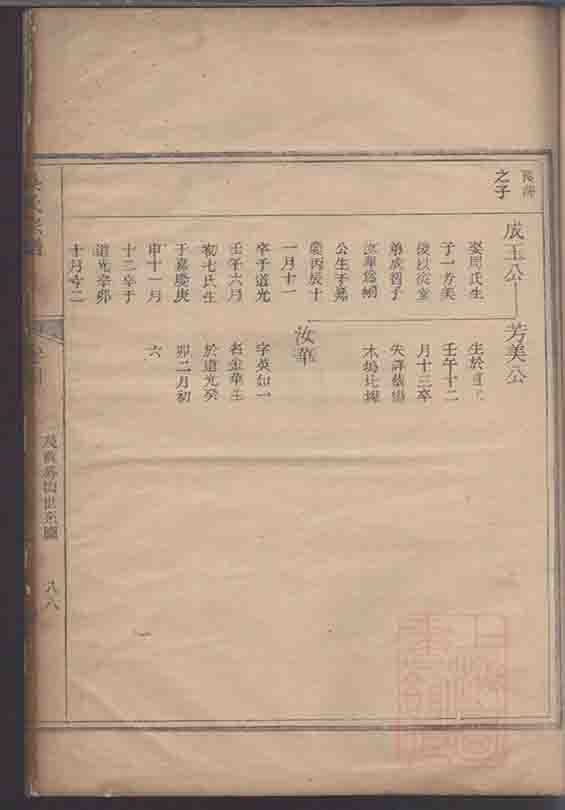 之子
成玉公
娶周氏生
子一芳美
後以從堂
弟成習子
汝華為嗣
公生于嘉
慶丙辰十
一月十一
卒于道光
壬午六月
初七氏生
于嘉慶庚
申十一月
十三卒于
道光辛卯
十月廿二
芳美公
生於道
壬午十二
月十三卒
失詳葬楊
木塢
汝華
字英如一
名金華生
於道光癸
卯二月初
六
八六